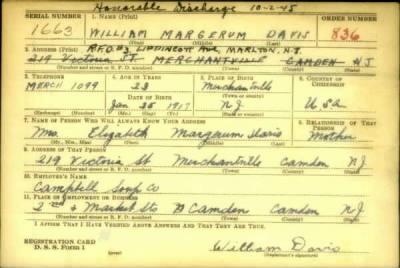 Honorable Discharge 10-2-45
SERIAL NUMBER 1. NAME (Print) ORDER NUMBER
1663 WILLIAM MARGERUM DAVIS 836
(First) (Middle) (Last)
2. ADDRESS (Print) R.F.D.#3 LIPPINCOTT AVE, MARLTON, N.J.
219 Victoria ST. MERCHANTVILLE CAMDEN NJ
(Number and street or R. F. D. number) (Town) (County) (State)
3. TELEPHONE 4. AGE IN YEARS 5. PLACE OF BIRTH 6. COUNTRY OF CITIZENSHIP
MERCH 1099 23 Merchantville
DATE OF BIRTH (Town or county)
Jan 25 1917 N.J. USA
(Exchange) (Number) (Mo.) (Day) (Yr.) (State or country)
7. NAME OF PERSON WHO WILL ALWAYS KNOW YOUR ADDRESS 8. RELATIONSHIP OF THAT PERSON
Mrs. Elizabeth Margerum Davis Mother
(Mr., Mrs., Miss) (First) (Middle) (Last)
9. ADDRESS OF THAT PERSON
219 Victoria St Merchantville Camden NJ
(Number and street or R. F. D. number) (Town) (County) (State)
10. EMPLOYER'S NAME
Campbell Soup Co
11. PLACE OF EMPLOYMENT OR BUSINESS
2nd & Market Sts Camden Camden NJ
(Number and street or R. F. D. number) (Town) (County) (State)
I AFFIRM THAT I HAVE VERIFIED ABOVE ANSWERS AND THAT THEY ARE TRUE.
REGISTRATION CARD
D. S. S. Form 1 William Davis
(over) (Registrant's signature)